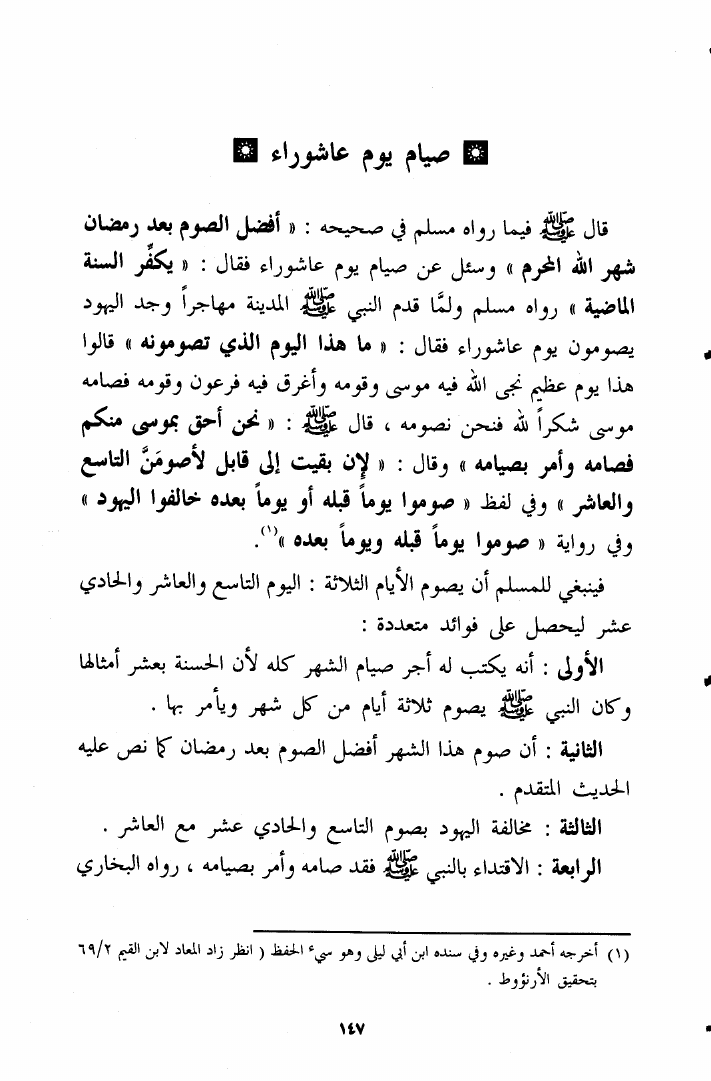 صيام يوم عاشوراء
قال ﷺ فيما رواه مسلم في صحيحه : « أفضل الصوم بعد رمضان
شهر الله المحرم » وسئل عن صيام يوم عاشوراء فقال : « يكفِّر السنة
الماضية » رواه مسلم ولمَّا قدم النبي ﷺ المدينة مهاجراً وجد اليهود
يصومون يوم عاشوراء فقال : « ما هذا اليوم الذي تصومونه » قالوا
هذا يوم عظيم نجى الله فيه موسى وقومه وأغرق فيه فرعون وقومه فصامه
موسى شكراً لله فنحن نصومه ، قال ﷺ : « نحن أحق بموسى منكم
فصامه وأمر بصيامه » وقال : « لإن بقيت إلى قابل لأصومَنَّ التاسع
والعاشر » وفي لفظ « صوموا يوماً قبله أو يوماً بعده خالفوا اليهود »
وفي رواية « صوموا يوماً قبله ويوماً بعده »(١).
فينبغي للمسلم أن يصوم الأيام الثلاثة : اليوم التاسع والعاشر والحادي
عشر ليحصل على فوائد متعددة :
الأولى : أنه يكتب له أجر صيام الشهر كله لأن الحسنة بعشر أمثالها
وكان النبي ﷺ يصوم ثلاثة أيام من كل شهر ويأمر بها .
الثانية : أن صوم هذا الشهر أفضل الصوم بعد رمضان كما نص عليه
الحديث المتقدم .
الثالثة : مخالفة اليهود بصوم التاسع والحادي عشر مع العاشر .
الرابعة : الاقتداء بالنبي ﷺ فقد صامه وأمر بصيامه ، رواه البخاري
(١) أخرجه أحمد وغيره وفي سنده ابن أبي ليلى وهو سيء الحفظ ( انظر زاد المعاد لابن القيم ٦٩/٢
بتحقيق الأرنؤوط .
١٤٧